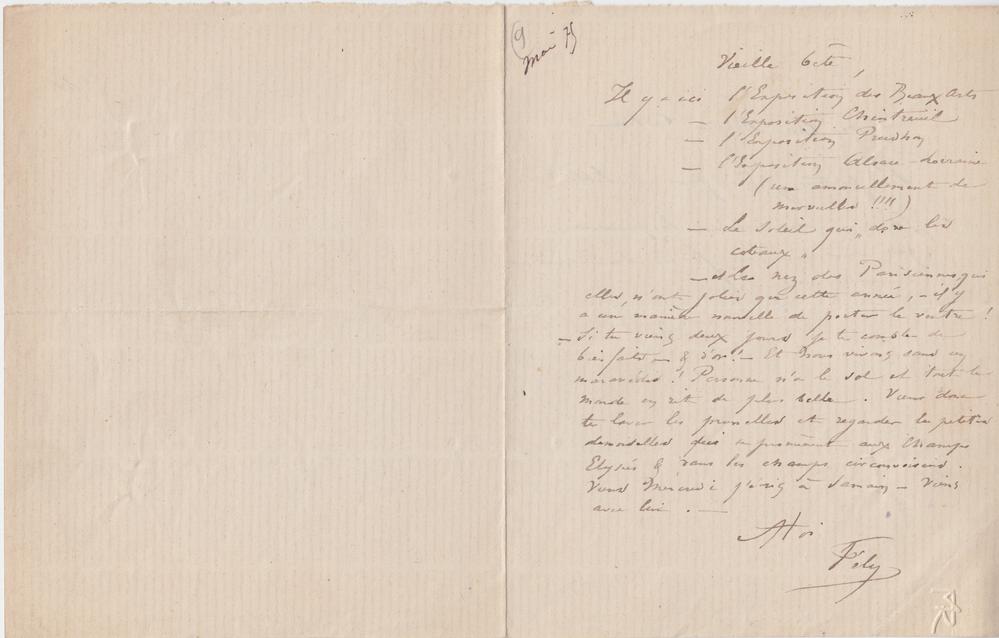 9
mai 75
Vieille bête,
Il y a ici l'Exposition des Beaux Arts
— l'Exposition Chintreuil
— l'Exposition Prudhon
— l'Exposition Alsace-Lorraine
(un amoncellement de
merveilles !!!!)
— Le Soleil qui „ dore les
coteaux „
— et les nez des Parisiennes qui
elles, n'ont jolies que cette année, – il y
a une manière nouvelle de porter le ventre !
– Si tu viens deux jours je te comble de
bienfaits – & d'or ! – Et nous vivons sans un
maravédis ! Personne n'a le sol et tout le
monde en rit de plus belle. Viens donc
te laver les prunelles et regarder les petites
demoiselles qui se promènent aux Champs
Elysées & dans les champs circonvoisins.
Viens Mercredi j'écris à – Viens
avec lui. —
A toi
Fély